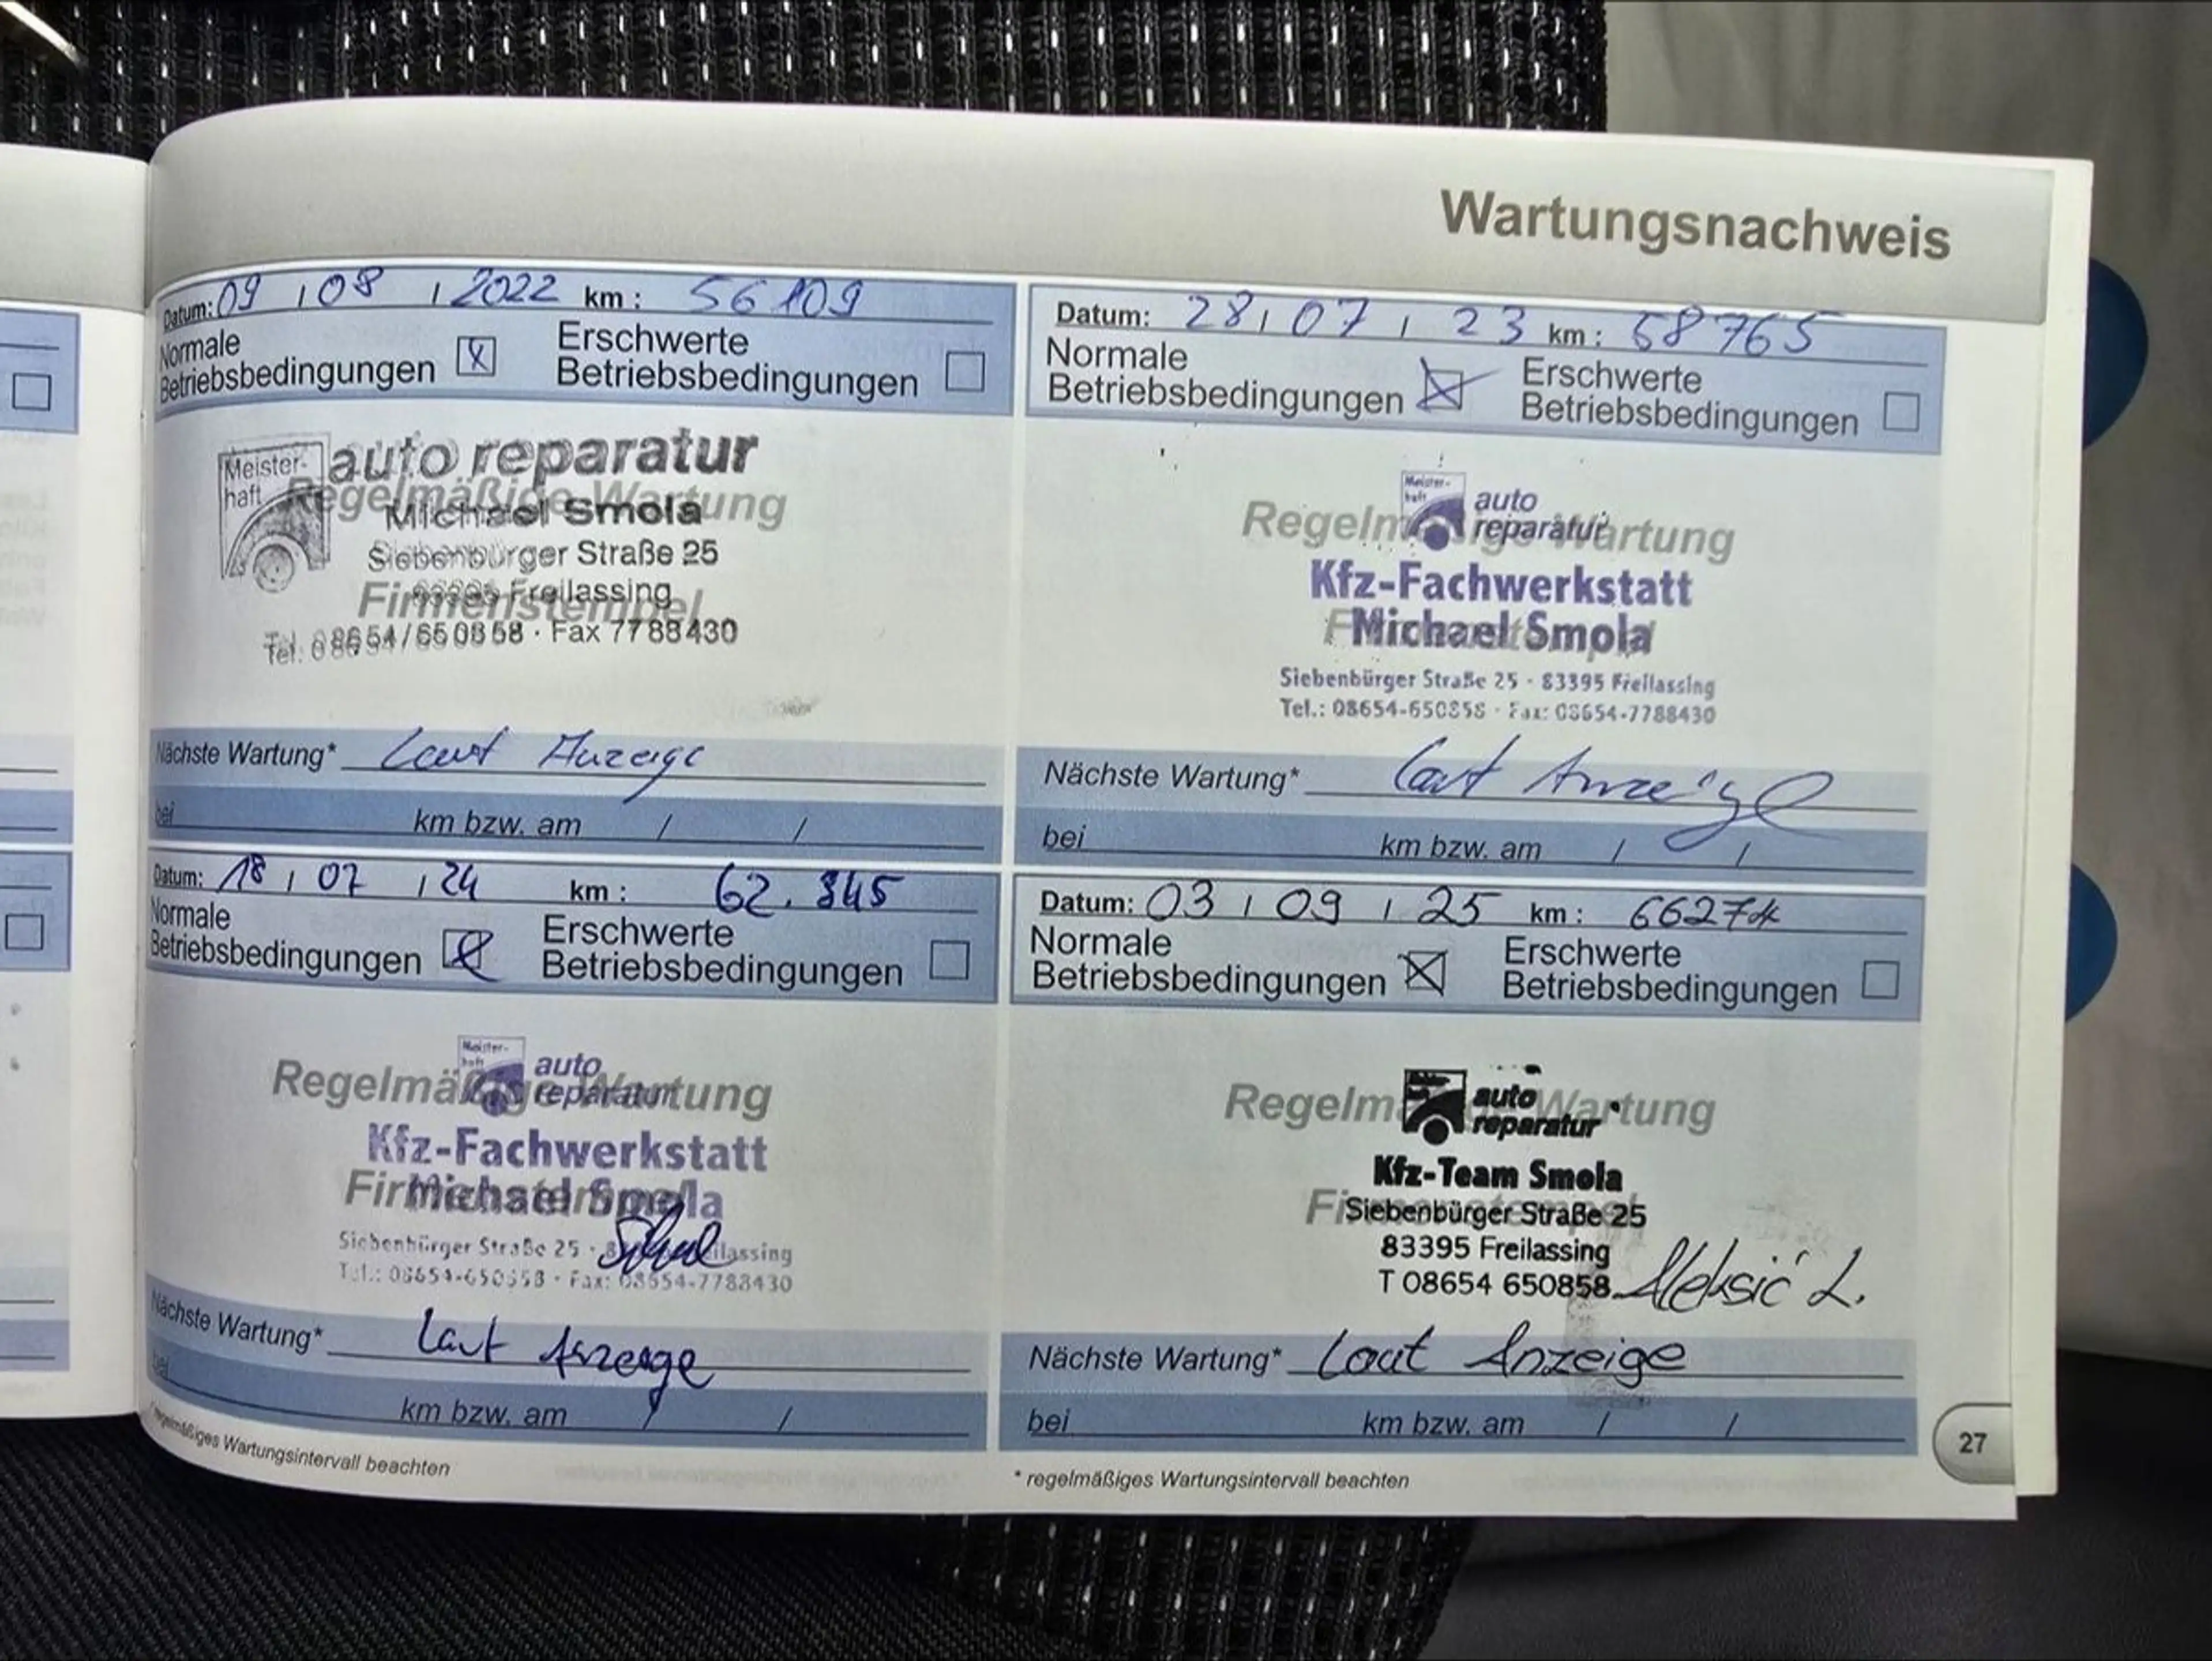 Wartungsnachweis
Datum: 09 / 08 / 2022 km : 56109
Normale
Betriebsbedingungen
Erschwerte
Betriebsbedingungen
Meister-
haft
auto reparatur
Regelmäßige Wartung
Michael Smola
Siebenbürger Straße 25
83395 Freilassing
Firmenstempel
Tel. 08654/650858 · Fax 7788430
Nächste Wartung* Laut Anzeige
bei km bzw. am / /
Datum: 28 / 07 / 23 km : 58765
Normale
Betriebsbedingungen
Erschwerte
Betriebsbedingungen
Meister-
haft
auto
reparatur
Regelmäßige Wartung
Kfz-Fachwerkstatt
Michael Smola
Siebenbürger Straße 25 · 83395 Freilassing
Tel.: 08654-650858 · Fax: 08654-7788430
Nächste Wartung* Laut Anzeige
bei km bzw. am / /
Datum: 18 / 07 / 24 km : 62.345
Normale
Betriebsbedingungen
Erschwerte
Betriebsbedingungen
Meister-
haft
auto
reparatur
Regelmäßige Wartung
Kfz-Fachwerkstatt
Firmenstempel
Michael Smola
Siebenbürger Straße 25 · Freilassing
Tel.: 08654-650858 · Fax: 08654-7788430
Nächste Wartung* Laut Anzeige
bei km bzw. am / /
* regelmäßiges Wartungsintervall beachten
Datum: 03 / 09 / 25 km : 66274
Normale
Betriebsbedingungen
Erschwerte
Betriebsbedingungen
auto
reparatur
Regelmäßige Wartung
Kfz-Team Smola
Firmenstempel
Siebenbürger Straße 25
83395 Freilassing
T 08654 650858 Aleksić L.
Nächste Wartung* Laut Anzeige
bei km bzw. am / /
* regelmäßiges Wartungsintervall beachten
27